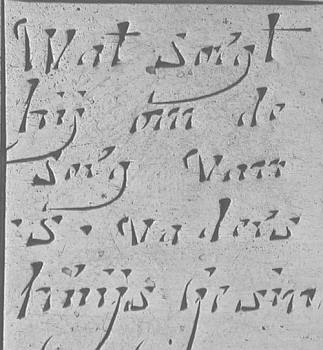 Wat sorgt
hij om de
sorg van
's. vaders
huijs gesin